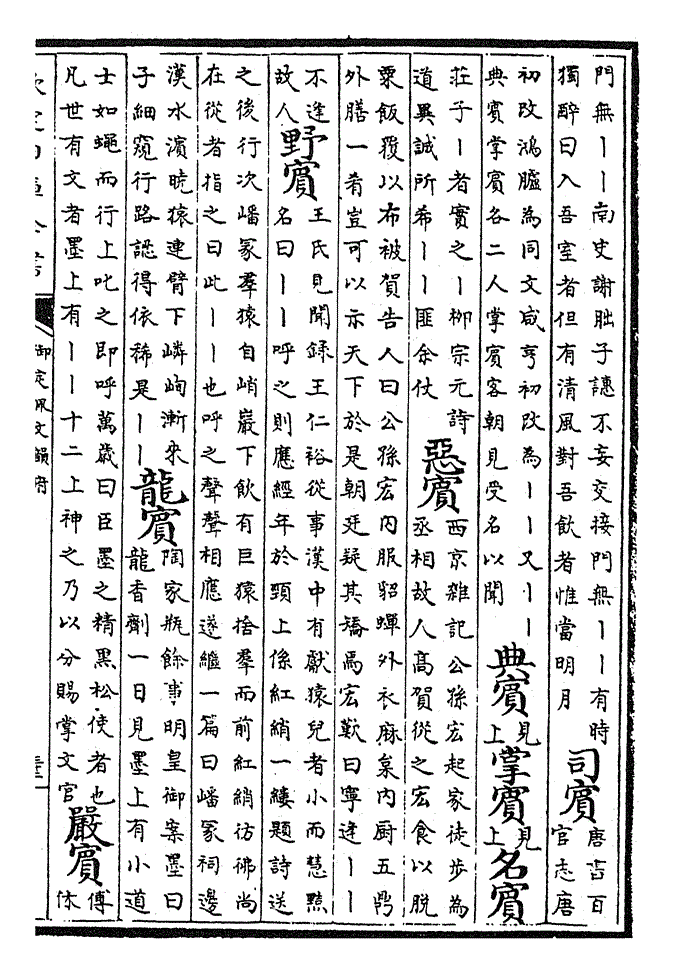 門無丨丨南史謝朏子譓不妄交接門無丨丨有時
獨醉曰入吾室者但有清風對吾飲者惟當明月
司賓
唐書百
官志唐
初改鴻臚為同文咸亨初改為丨丨又丨丨
典賓掌賓各二人掌賓客朝見受名以聞
典賓
見上
掌賓
見上
名賓
莊子丨者實之丨柳宗元詩
道異誠所希丨丨匪余仗
惡賓
西京雜記公孫宏起家徒步為
丞相故人髙賀從之宏食以脫
粟飯覆以布被賀告人曰公孫宏内服貂蟬外衣麻枲内厨五鼎
外膳一肴豈可以示天下於是朝廷疑其矯焉宏歎曰寧逢丨丨
不逢
故人
野賓
王氏見聞錄王仁裕從事漢中有獻猿兒者小而慧黠
名曰丨丨呼之則應經年於頸上係紅綃一縷題詩送
之後行次嶓冢羣猿自峭巖下飲有巨猿捨羣而前紅綃彷彿尚
在從者指之曰此丨丨也呼之聲聲相應遂繼一篇曰嶓冢祠邊
漢水濱曉猿連臂下嶙峋漸來
子細窺行路認得依稀是丨丨
龍賓
陶家瓶餘事明皇御案墨曰
龍香劑一日見墨上有小道
士如蠅而行上叱之即呼萬歲曰臣墨之精黑松使者也
凡世有文者墨上有丨丨十二上神之乃以分賜掌文官
嚴賓
傅
休
御定佩文韻府